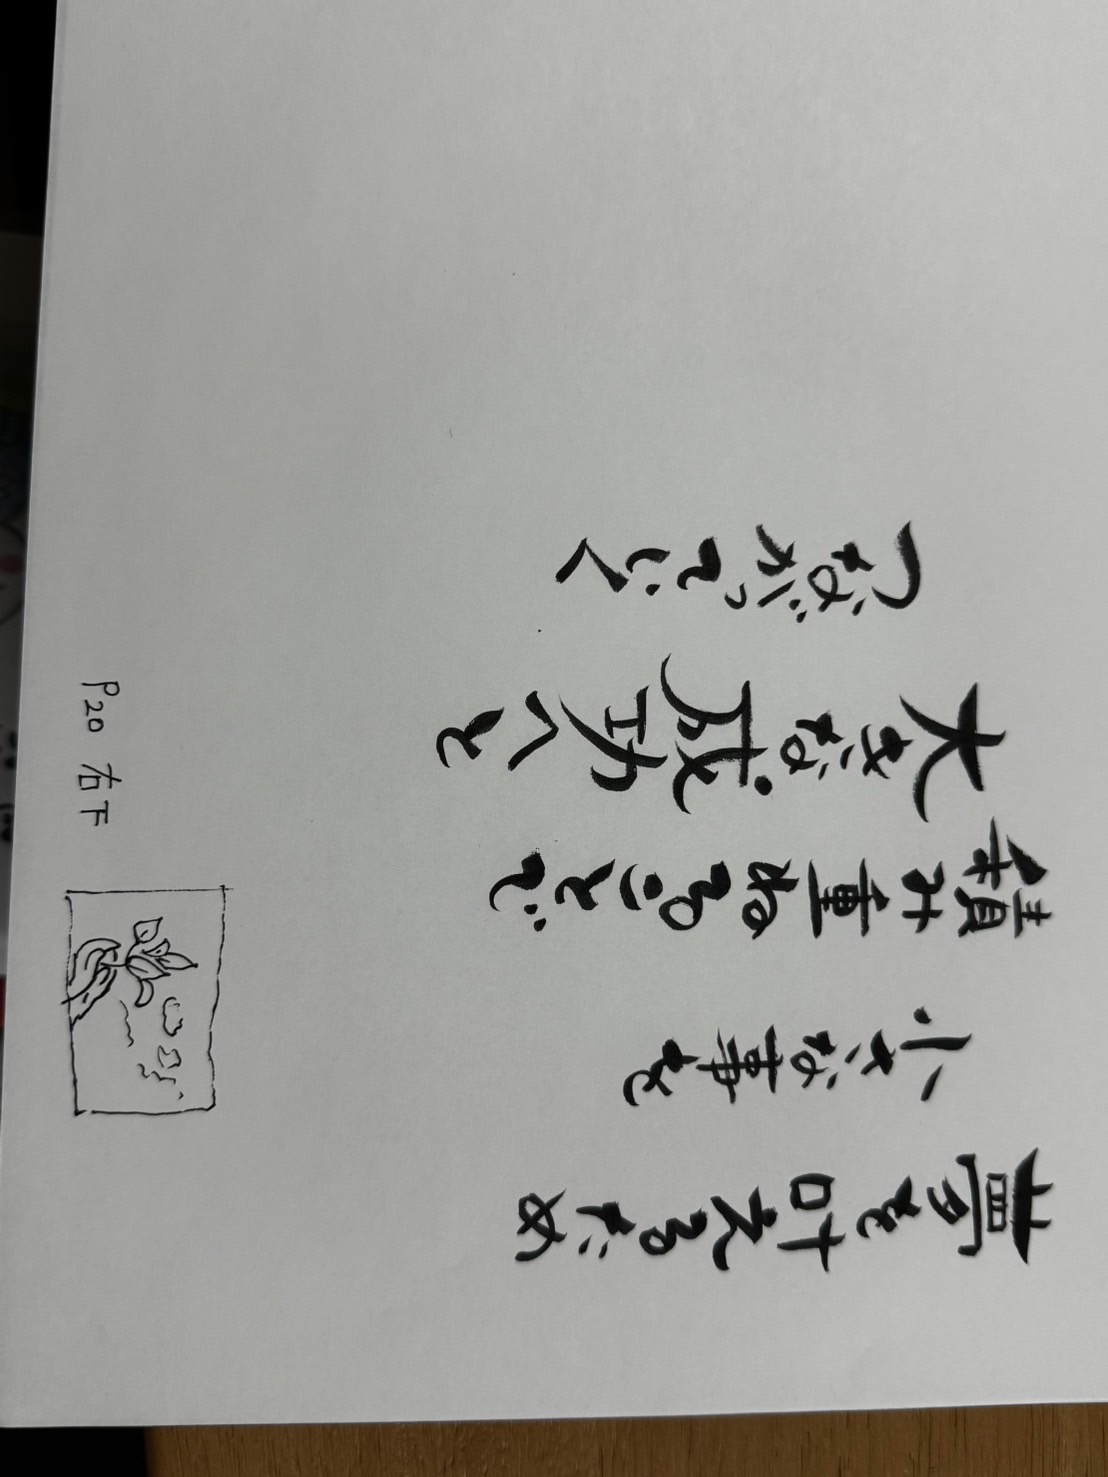 夢を叶えるため
小さな事を
積み重ねることで
大きな成功へと
つながっていく
P20 右下